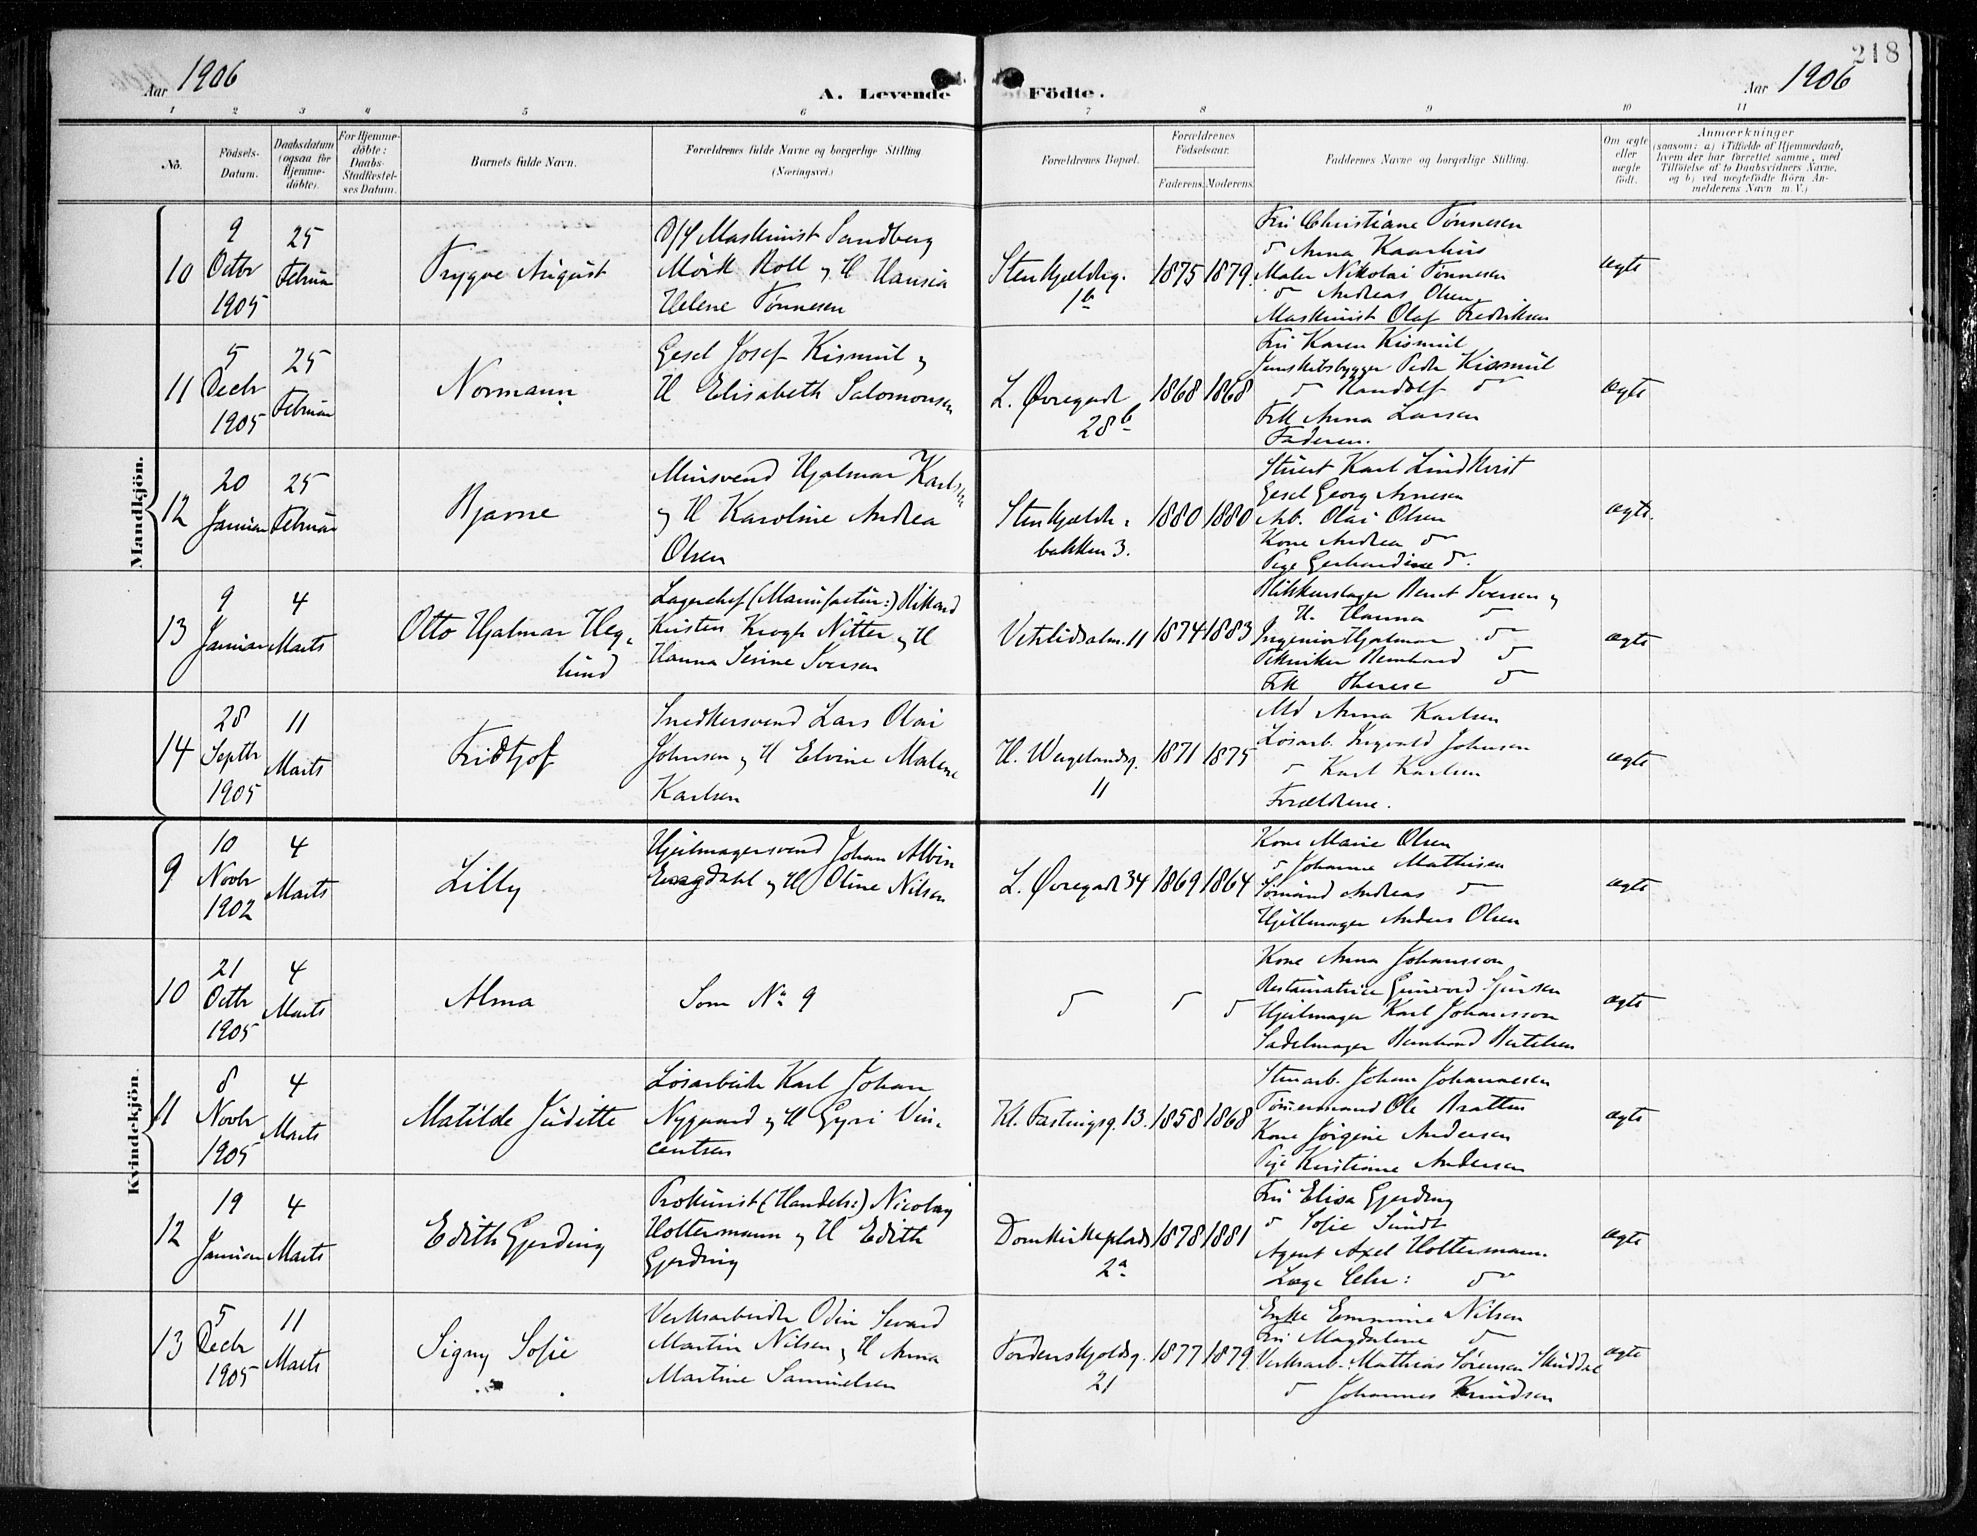 218
Aar 1906
A. Levende Födte.
Aar 1906
1 2 3 4 5 6 7 8 9 10 11
No.
Födsels-
Datum.
Daabsdatum
(ogsaa for
Hjemme-
döbte).
For Hjemme-
döbte:
Daabs-
Stadfestel-
ses Datum.
Barnets fulde Navn.
Forældrenes fulde Navne og borgerlige Stilling
(Næringsvei.)
Forældrenes Bopæl.
Forældrenes
Födselsaar.
Faderens. Moderens.
Faddernes Navne og borgerlige Stilling.
Om ægte
eller
uægte
født.
Anmærkninger
(saasom: a) i Tilfælde af Hjemmedaab,
hvem der har forrettet samme, med
Tilföielse af to Daabsvidners Navne,
og b) ved uægtefödte Börn An-
melderens Navn m. V.)
Mandkjön.
10
9
Octbr
1905
25
Februar
Trygve August
D/S Maskinist Sandberg
Mörk Roll og H Hansia
Helene Tønnesen
Stenkjeldg.
1b
1875
1879.
Fru Christiane Tønnesen
d Anna Kaarhus
Maler Nikolai Tønnesen
d Andreas Olsen
Maskinist Olaf Fredriksen
ægte
11
5
Decbr
1905
25
Februar
Normann
Gesel Josef Kismul og
H Elisabeth Salomonsen
L. Øvregade
28b
1868
1868
Fru Karen Kismul
Jernskibsbygger Peder Kismul
d Randolf do
Frk Anna Larsen
Faderen.
ægte
12
20
Januar
25
Februar
Bjarne
Mursvend Hjalmar Karlsen
og H Karoline Andrea
Olsen
Stenkjelder
bakken 3.
1880
1880
Stuert Karl Lindkvist
Gesel Georg Arnesen
Arb. Olai Olsen
Kone Andrea do
Pige Gerhardine do.
ægte.
13
9
Januar
4
Marts
Otto Hjalmar Heg-
lund
Lagerchef (Manufactur:) Rikard
Kristen Krogh Nitter og H
Hanna Serine Iversen
Vetrlidsalm. 11
1874
1883
Blikkenslager Bernt Iversen og
H. Hanna d
Ingeniør Hjalmar do
Tekniker Bernhard d
Frk Therese d
ægte
14
28
Septbr
1905
11
Marts
Fridtjof
Snedkersvend Lars Olai
Johnsen og H Elvine Malene
Karlsen
H. Wergelandsg.
11
1871
1875
Md Anna Karlsen
Løsarb. Ingvald Johnsen
d Karl Karlsen
Forældrene.
ægte
Kvindekjön.
9
10
Novbr
1902
4
Marts
Lilly
Hjulmagersvend Johan Albin
Engdahl og H Oline Nilsen
L. Øvregade 34
1869
1864
Kone Marie Olsen
d Johanne Mathisen
Sømand Andreas d
Hjulmager Anders Olsen
ægte
10
21
Octbr
1905
4
Marts
Alma
Som No 9
d
d
d
Kone Anna Johansson
Restauratrice Gunvord Sjursen
Hjulmager Karl Johansson
Sadelmager Bernhard Bertelsen
ægte
11
8
Novbr
1905
4
Marts
Matilde Juditte
Løsarbeider Karl Johan
Nygaard og H Gyri Vin-
centsen
Kl. Fastingsg. 13.
1858
1868
Stenarb. Johan Johannesen
Tømmermand Ole Bratten
Kone Jørgine Andersen
Pige Kristiane Andersen
ægte
12
19
Januar
4
Marts
Edith Gjerding
Prokurist (Handels:) Nicolay
Holtermann og H Edith
Gjerding
Domkirkeplads
2a
1878
1881
Fru Elisa Gjerding
d Sofie Sundt
Agent Axel Holtermann.
Læge Chr: do
ægte
13
5
Decbr
1905
11
Marts
Signy Sofie
Verksarbeider Odin Sevard
Martin Nilsen og H Anna
Martine Samuelsen
Tordenskjoldsg.
21
1877
1879.
Enke Emmine Nilsen
Fru Magdalene d
Verksarb. Mathias Sørensen Skuddal
d Johannes Knudsen
ægte